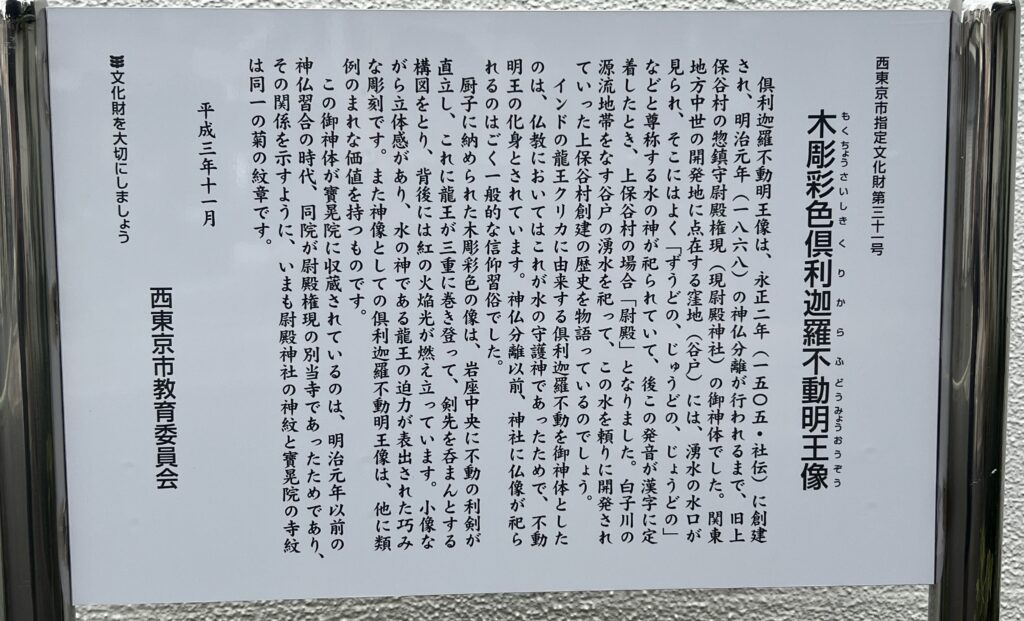 西東京市指定文化財第三十一号
木彫彩色倶利迦羅不動明王像
もくちょうさいしきくりからふどうみょうおうぞう
倶利迦羅不動明王像は、永正二年（一五〇五・社伝）に創建
され、明治元年（一八六八）の神仏分離が行われるまで、旧上
保谷村の惣鎮守尉殿権現（現尉殿神社）の御神体でした。関東
地方中世の開発地に点在する窪地（谷戸）には、湧水の水口が
見られ、そこにはよく「ずうどの、じゅうどの、じょうどの」
などと尊称する水の神が祀られていて、後この発音が漢字に定
着したとき、上保谷村の場合「尉殿」となりました。白子川の
源流地帯をなす谷戸の湧水を祀って、この水を頼りに開発され
ていった上保谷村創建の歴史を物語っているのでしょう。
インドの龍王クリカに由来する倶利迦羅不動を御神体とした
のは、仏教においてはこれが水の守護神であったためで、不動
明王の化身とされています。神仏分離以前、神社に仏像が祀ら
れるのはごく一般的な信仰習俗でした。
厨子に納められた木彫彩色の像は、岩座中央に不動の利剣が
直立し、これに龍王が三重に巻き登って、剣先を呑まんとする
構図をとり、背後には紅の火焔光が燃え立っています。小像な
がら立体感があり、水の神である龍王の迫力が表出された巧み
な彫刻です。また神像としての倶利迦羅不動明王像は、他に類
例のまれな価値を持つものです。
この御神体が寶晃院に収蔵されているのは、明治元年以前の
神仏習合の時代、同院が尉殿権現の別当寺であったためであり、
その関係を示すように、いまも尉殿神社の神紋と寶晃院の寺紋
は同一の菊の紋章です。
平成三年十一月
西東京市教育委員会
文化財を大切にしましょう